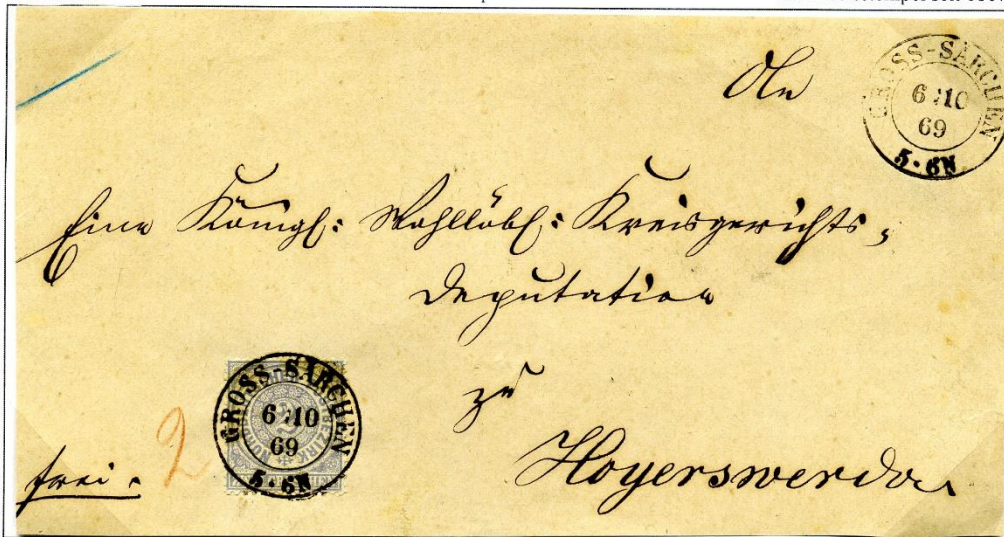 An
GROSS-SÄRCHEN
6 10
69
5-6N
Eine Königl: Wohllöbl: Kreisgerichts-
Deputation
zu
Hoyerswerda
GROSS-SÄRCHEN
6 10
69
5-6N
2
frei.
2